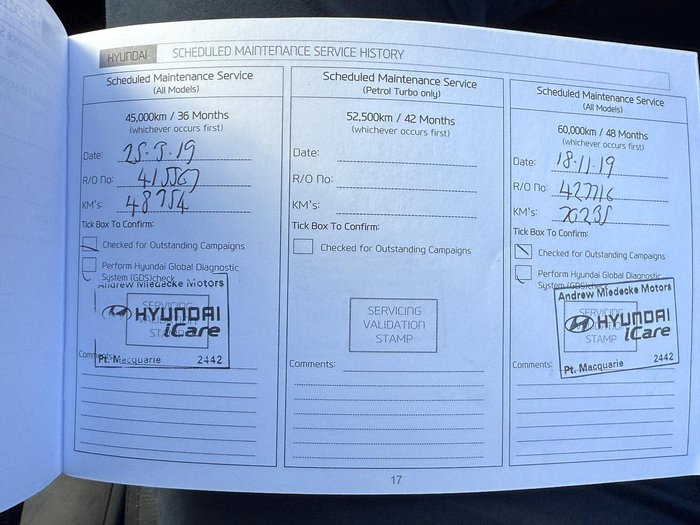 HYUNDAI SCHEDULED MAINTENANCE SERVICE HISTORY
Scheduled Maintenance Service
(All Models)
45,000km / 36 Months
(whichever occurs first)
Date:
R/O No:
KM's:
Tick Box To Confirm:
Checked for Outstanding Campaigns
Perform Hyundai Global Diagnostic
System (GDS)check
Andrew Miedecke Motors
SERVICING
VALIDATION
STAMP
HYUNDAI
iCare
Pt. Macquarie 2442
Comments:
Scheduled Maintenance Service
(Petrol Turbo only)
52,500km / 42 Months
(whichever occurs first)
Date:
R/O No:
KM's:
Tick Box To Confirm:
Checked for Outstanding Campaigns
SERVICING
VALIDATION
STAMP
Comments:
Scheduled Maintenance Service
(All Models)
60,000km / 48 Months
(whichever occurs first)
Date: 18.11.19
R/O No: 427716
KM's: 70235
Tick Box To Confirm:
Checked for Outstanding Campaigns
Perform Hyundai Global Diagnostic
System (GDS)check
Andrew Miedecke Motors
SERVICING
VALIDATION
STAMP
HYUNDAI
iCare
Pt. Macquarie 2442
Comments:
17